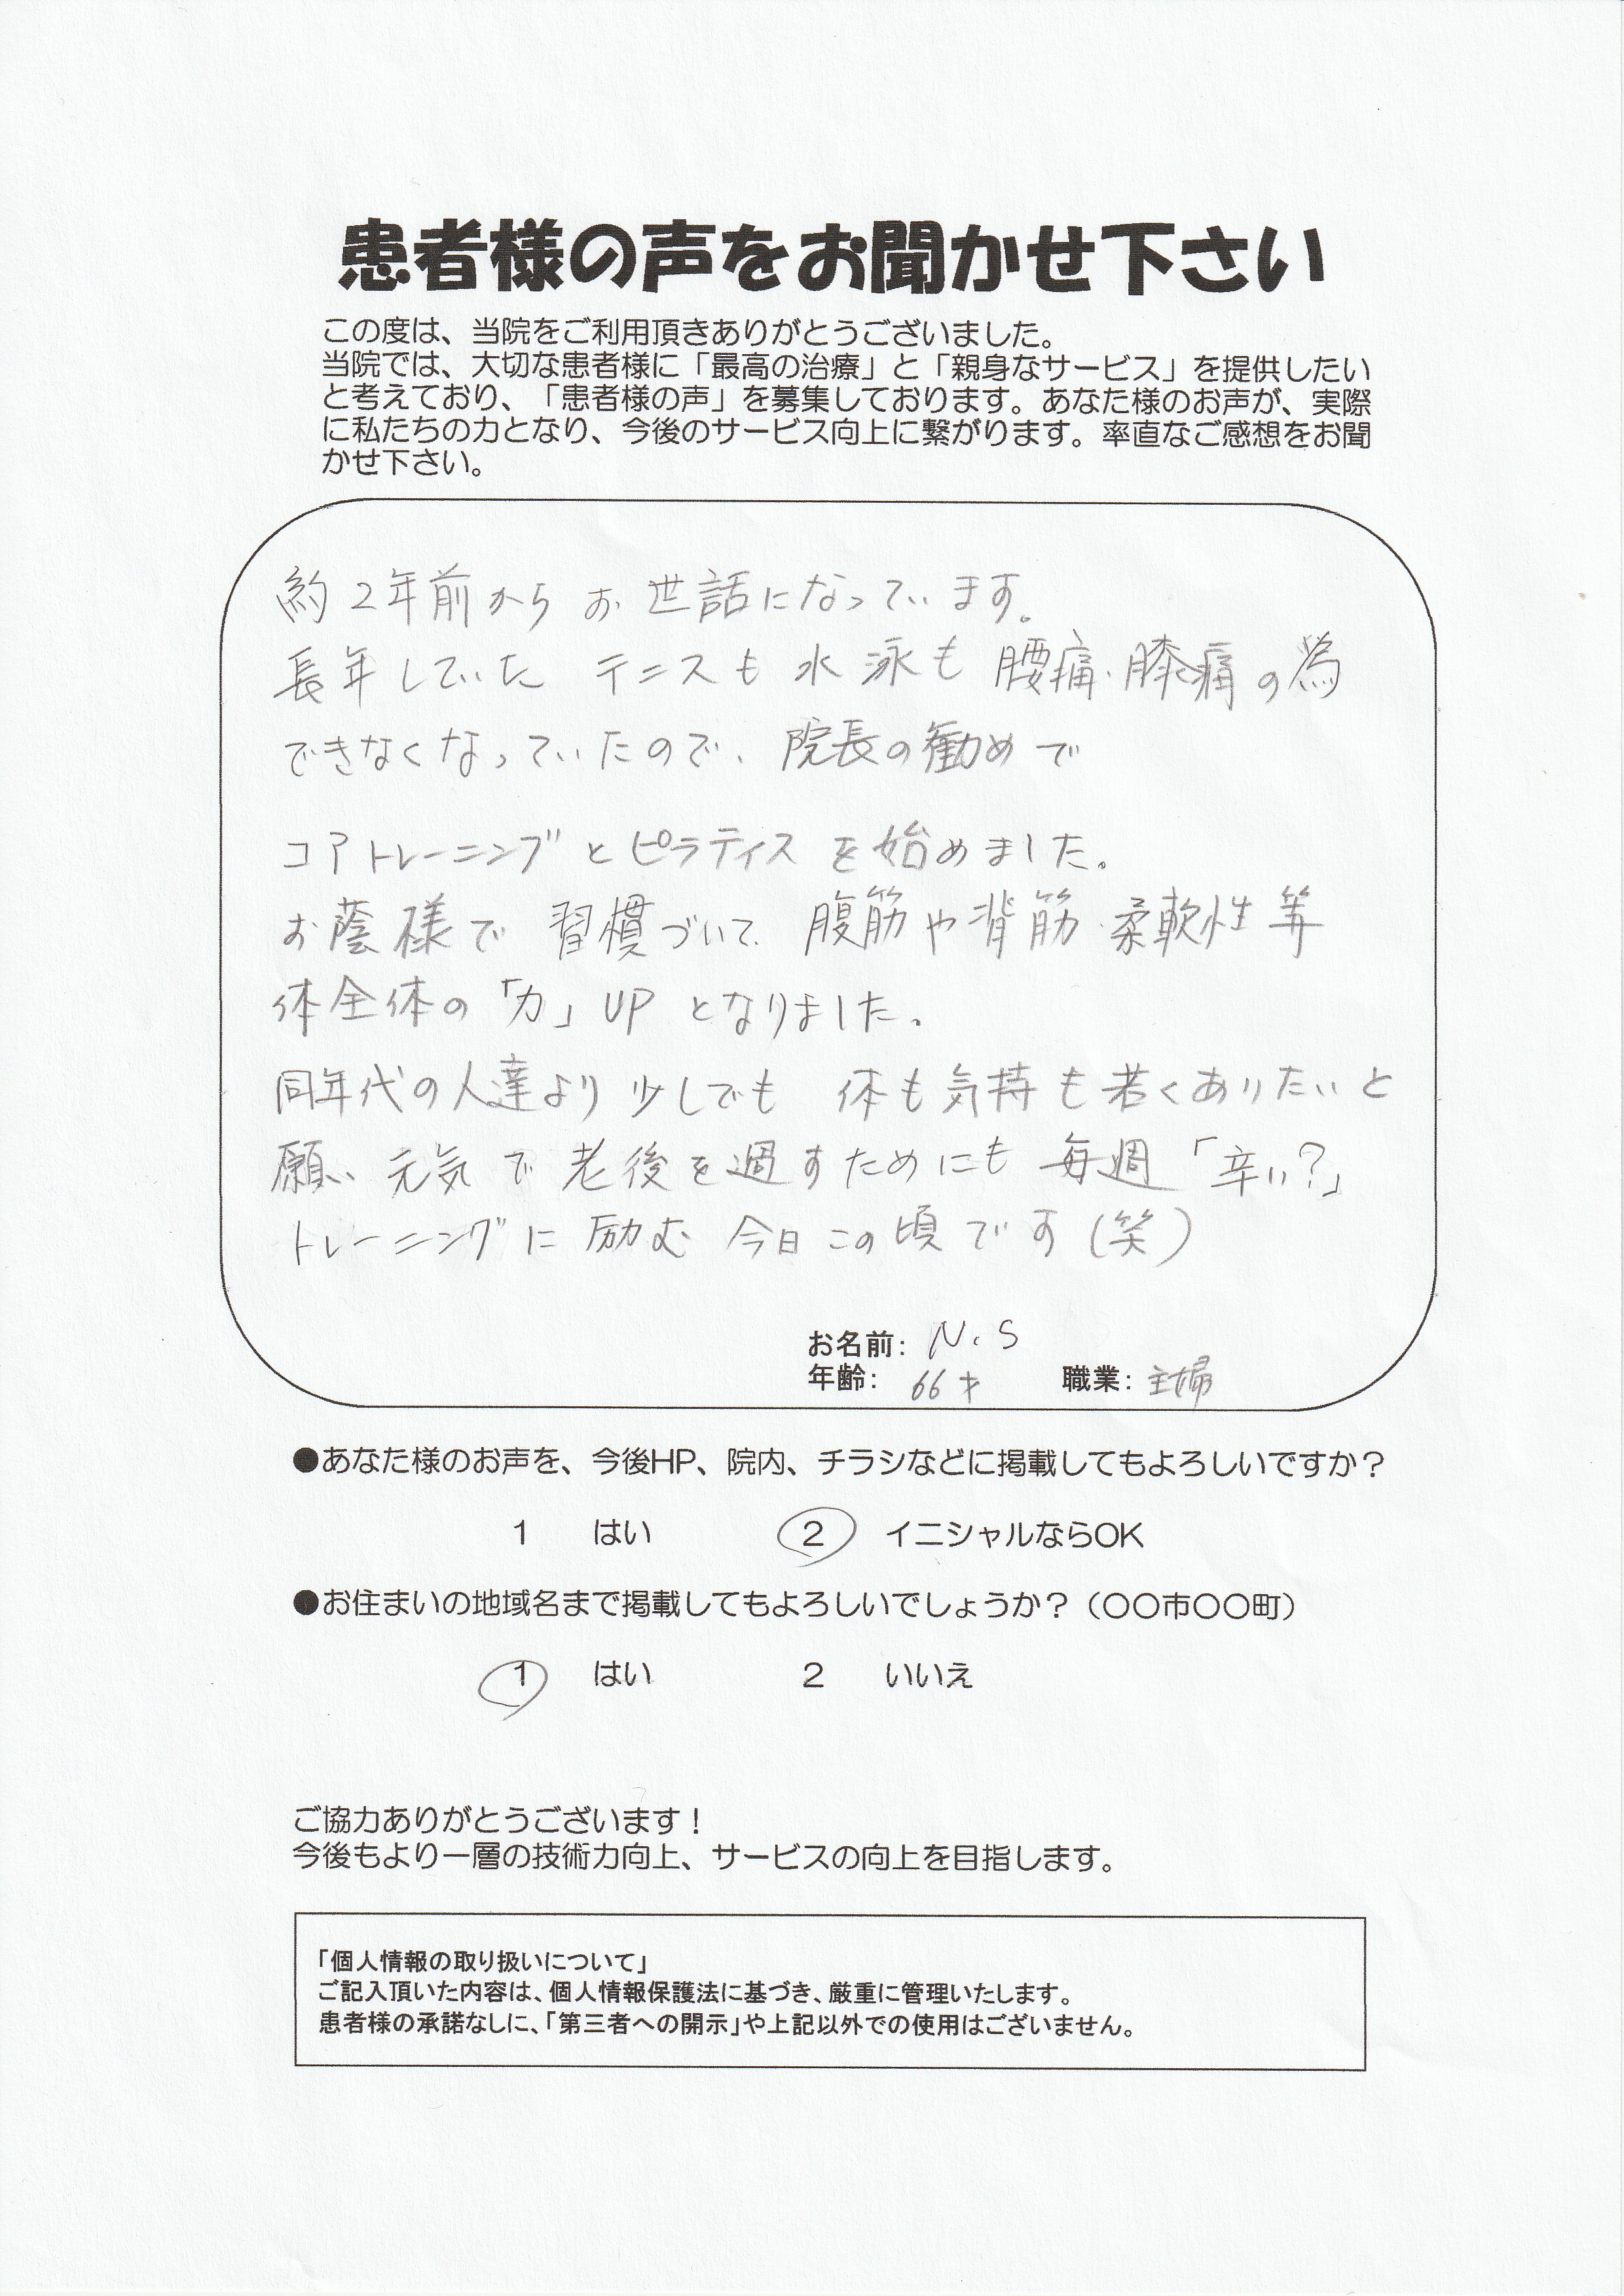 患者様の声をお聞かせ下さい
この度は、当院をご利用頂きありがとうございました。
当院では、大切な患者様に「最高の治療」と「親身なサービス」を提供したい
と考えており、「患者様の声」を募集しております。あなた様のお声が、実際
に私たちの力となり、今後のサービス向上に繋がります。率直なご感想をお聞
かせ下さい。
約2年前からお世話になっています。
長年していたテニスも水泳も腰痛・膝痛の為
できなくなっていたので、院長の勧めで
コアトレーニングとピラティスを始めました。
お蔭様で習慣づいて、腹筋や背筋・柔軟性等
体全体の「力」UPとなりました。
同年代の人達より少しでも 体も気持も若くありたいと
願い、元気で老後を過すためにも毎週「辛い?」
トレーニングに励む今日この頃です(笑)
お名前: N.S
年齢: 66才 職業: 主婦
●あなた様のお声を、今後HP、院内、チラシなどに掲載してもよろしいですか?
1 はい 2 イニシャルならOK
●お住まいの地域名まで掲載してもよろしいでしょうか?(〇〇市〇〇町)
1 はい 2 いいえ
ご協力ありがとうございます!
今後もより一層の技術力向上、サービスの向上を目指します。
「個人情報の取り扱いについて」
ご記入頂いた内容は、個人情報保護法に基づき、厳重に管理いたします。
患者様の承諾なしに、「第三者への開示」や上記以外での使用はございません。